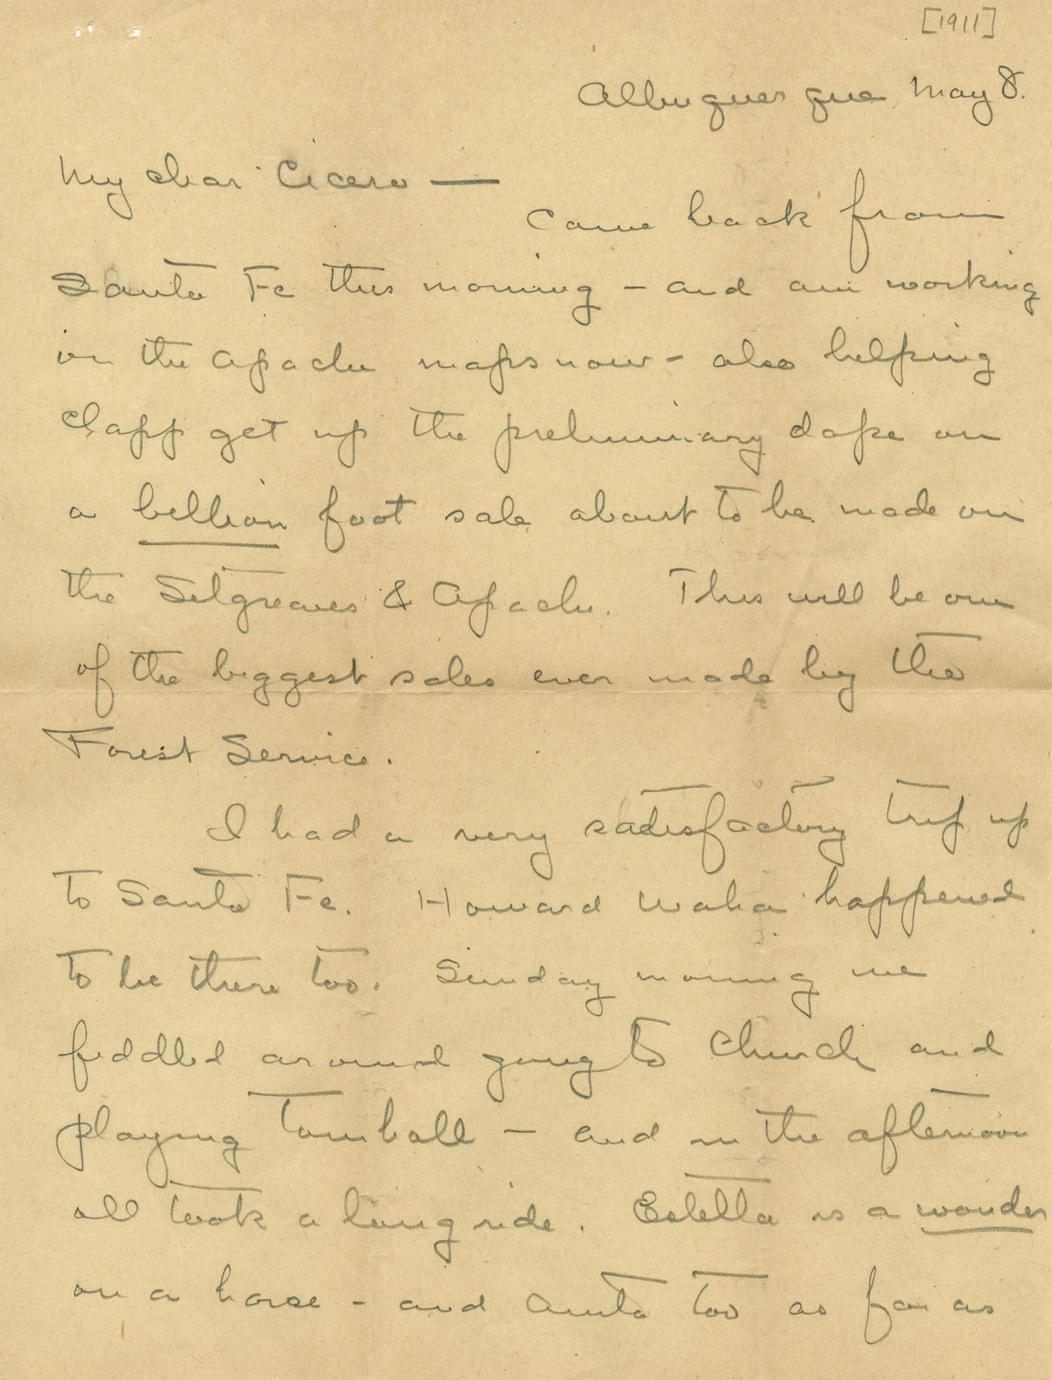 [1911]
Albuquerque May 8.
My dear Cicero —
Came back from
Santa Fe this morning - and am working
on the Apache maps now - also helping
Clapp get up the preliminary dope on
a billion foot sale about to be made on
the Sitgreaves & Apache. This will be one
of the biggest sales ever made by the
Forest Service.
I had a very satisfactory trip up
to Santa Fe. Howard Waha happened
to be there too. Sunday morning we
fiddled around going to Church and
playing - and in the afternoon
all took a long ride. Estella is a wonder
on a horse - and Anita too as far as